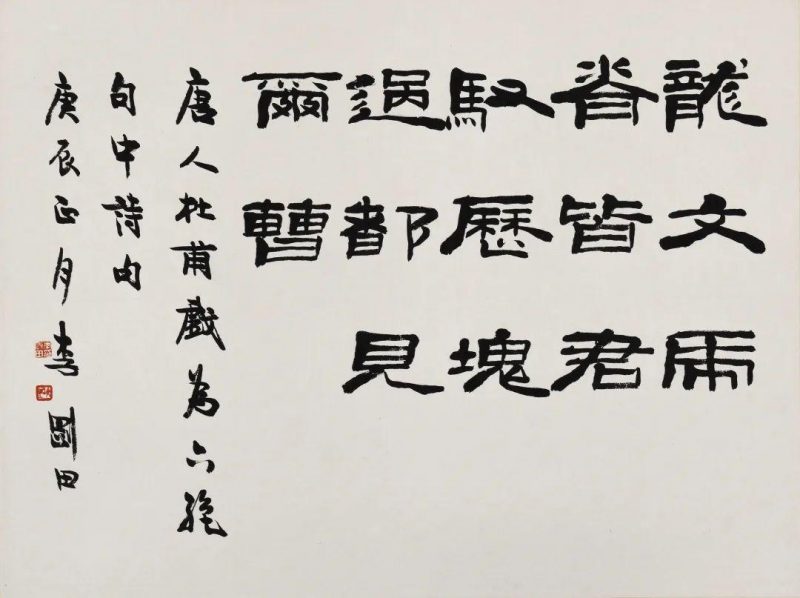 龍文虎
脊皆君
馭歷塊
過都見
爾曹
唐人杜甫戲為六絕
句中詩句
庚辰正月李剛田